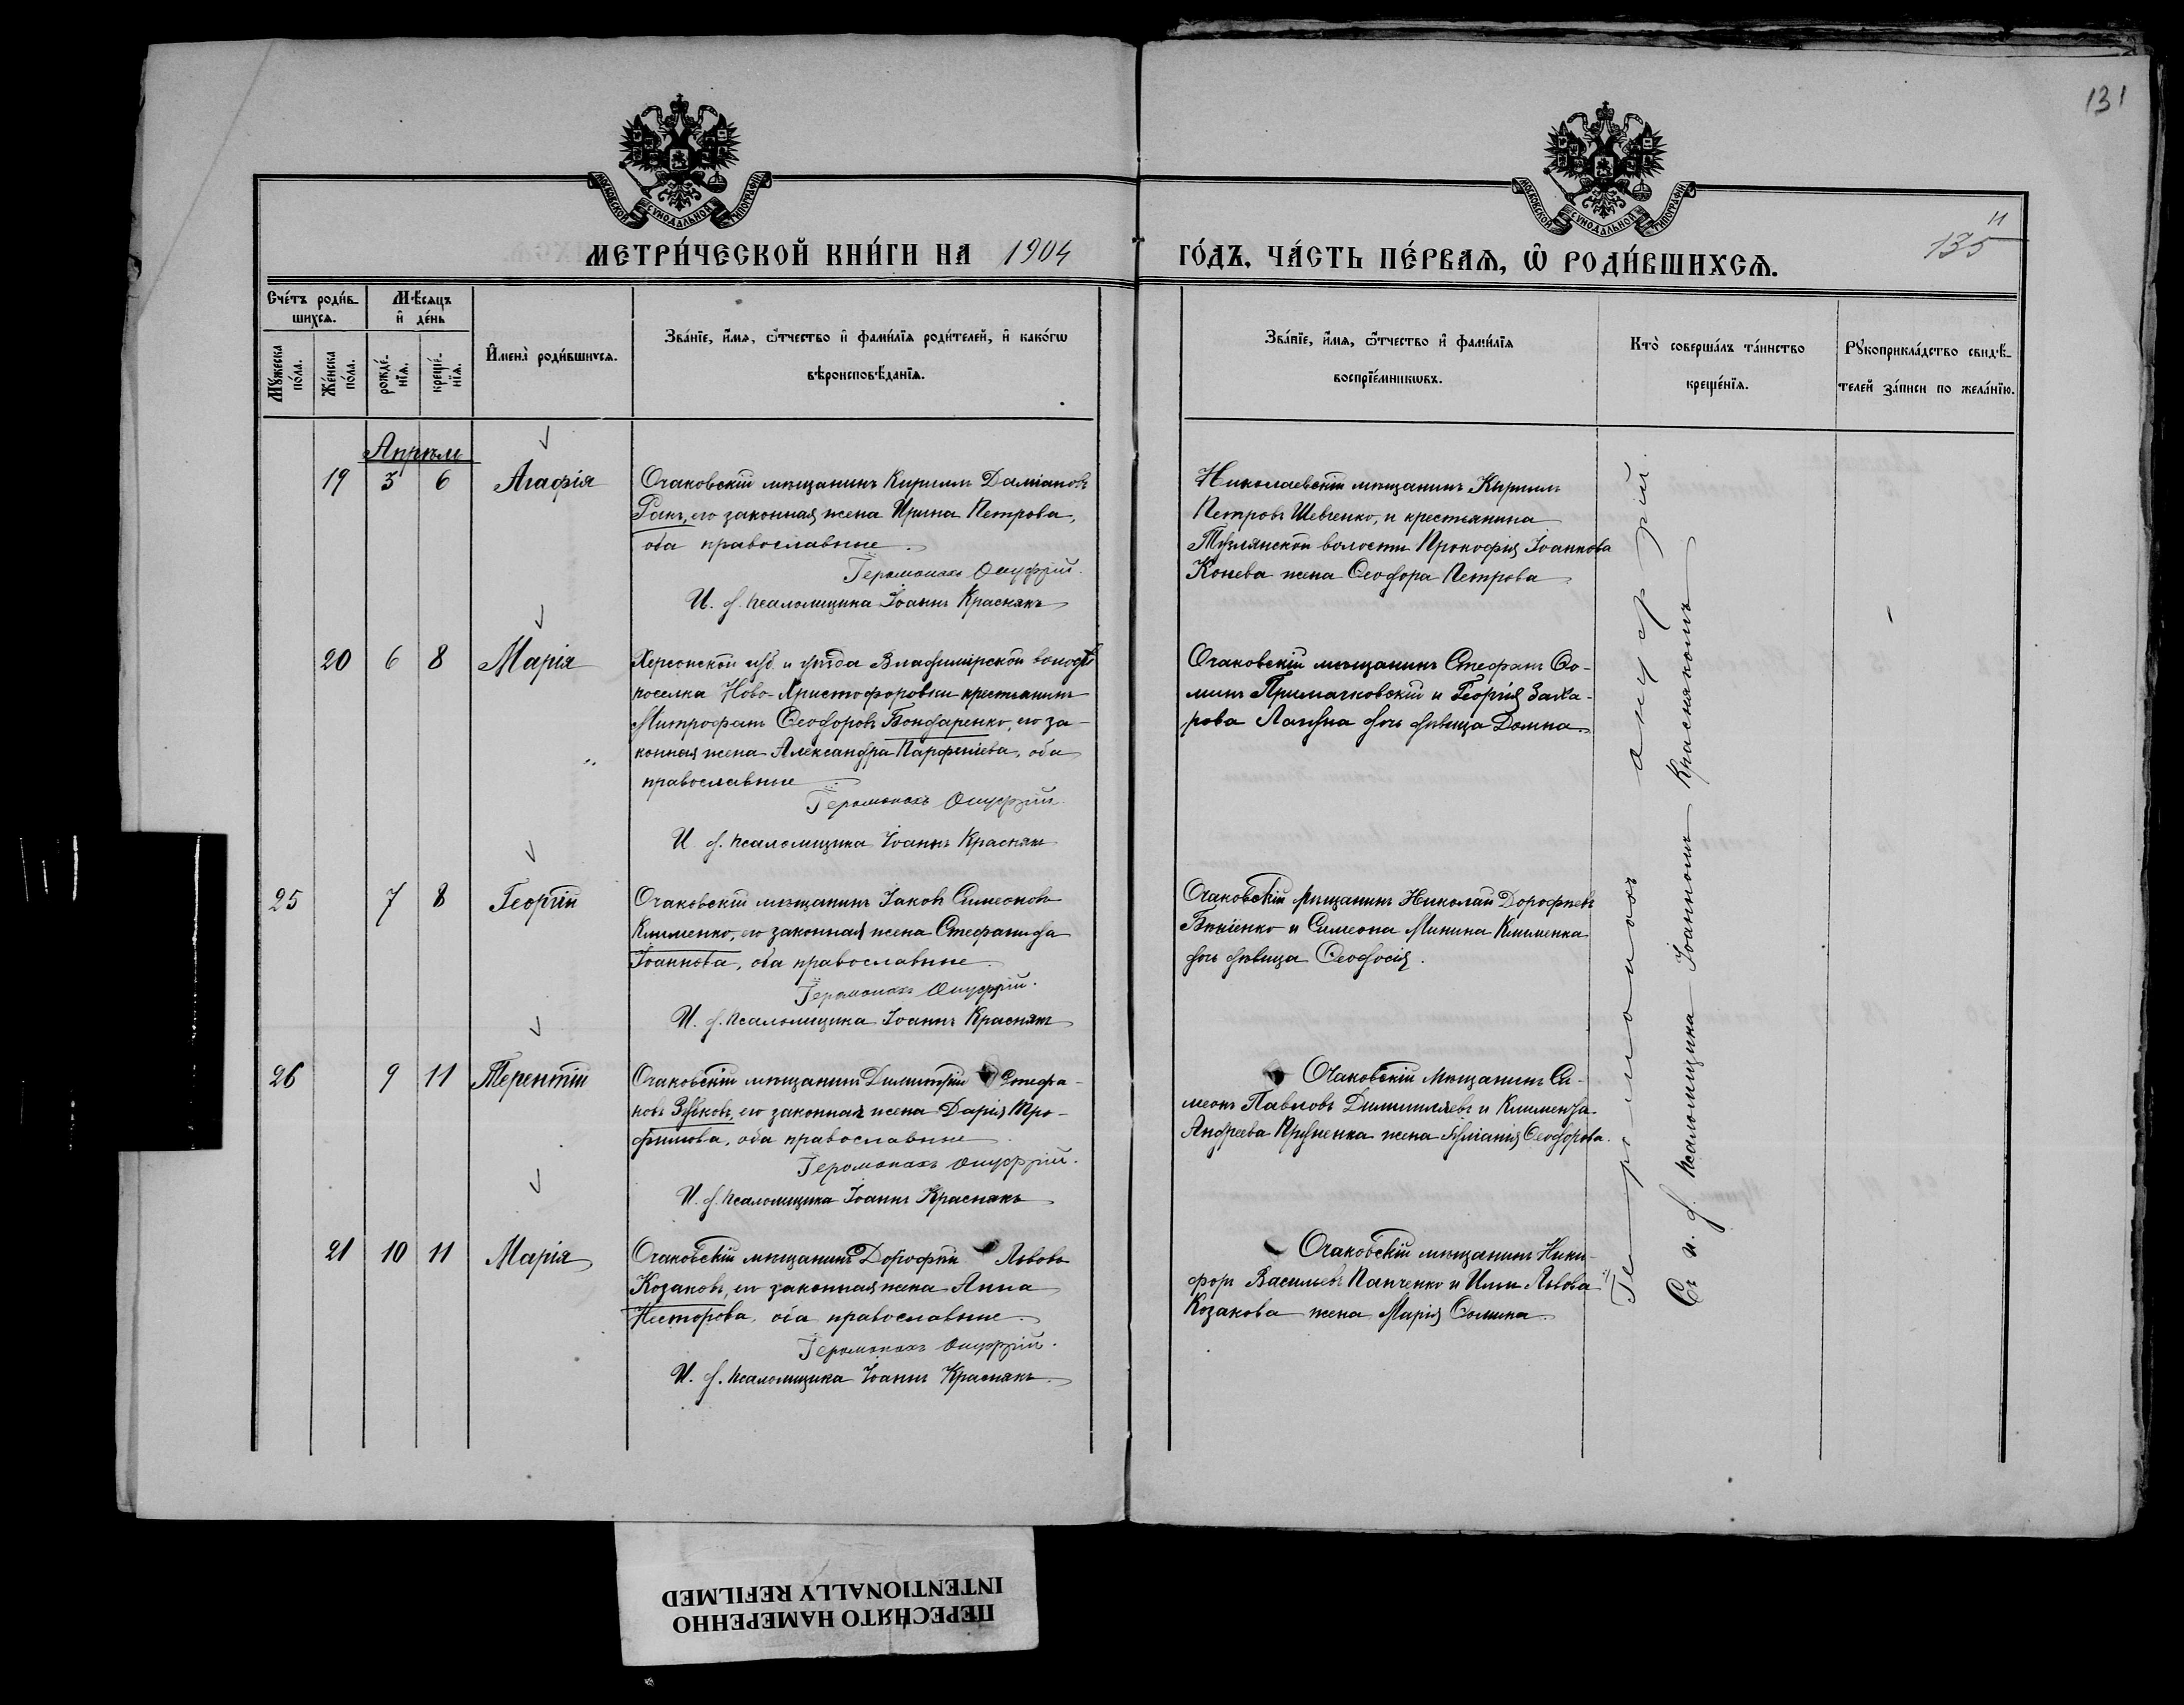 131
МОСКОВСКОЙ СѴНОДАЛЬНОЙ ТИПОГРАФІИ
МОСКОВСКОЙ СѴНОДАЛЬНОЙ ТИПОГРАФІИ
МЕТРИ́ЧЕСКОЙ КНИ́ГИ НА 1904
ГО́ДЪ, ЧА́СТЬ ПЕ́РВАѦ, Ѽ РОДИ́ВШИХСѦ.
11
135
Сче́тъ роди́в-
шихсѧ.
Мѣсѧцъ
и҆ де́нь
Мꙋ́жеска
по́ла.
Же́нска
по́ла.
рожде́-
нїѧ.
креще́-
нїѧ.
И҆мена̀ роди́вшихсѧ.
Зва́нїе, и҆́мѧ, ѻ҆́тчество и҆ фами́лїѧ роди́телей, и҆ како́гѡ
вѣроисповѣ́данїѧ.
Зва́нїе, и҆́мѧ, ѻ҆́тчество и҆ фами́лїѧ
воспрїе́мникѡвъ.
Кто̀ соверша́лъ та́инство
креще́нїѧ.
Рꙋкоприкла́дство свидѣ́-
телей за́писи по жела́нїю.
Апрѣль
19 3 6 Агафія
Очаковскій мѣщанинъ Кириллъ Даміановъ
Ракъ, его законная жена Ирина Петрова,
оба православные
Іеромонахъ Онуфрій.
И. д. псаломщика Іоаннъ Краснякъ
Николаевскій мѣщанинъ Кириллъ
Петровъ Шевченко, и крестьянина
Тузлянской волости Прокофія Іоаннова
Конева жена Ѳеодора Петрова
20 6 8 Марія
Херсонской губ. и уѣзда Владимірской волости
поселка Ново-Христофоровки крестьянинъ
Митрофанъ Ѳеодоровъ Бондаренко, его за-
конная жена Александра Парфеніева, оба
православные
Іеромонахъ Онуфрій.
И. д. псаломщика Іоаннъ Краснякъ
Очаковскій мѣщанинъ Стефанъ Ѳо-
минъ Примачковскій и Георгія Заха-
рова дочь дѣвица Домна
25 7 8 Георгій
Очаковскій мѣщанинъ Іаковъ Симеоновъ
Клименко, его законная жена Стефанида
Іоаннова, оба православные
Іеромонахъ Онуфрій.
И. д. псаломщика Іоаннъ Краснякъ
Очаковскій мѣщанинъ Николай Дорофеевъ
и Симеона Минина Клименка
дочь дѣвица Ѳеодосія.
26 9 11 Терентій
Очаковскій мѣщанинъ Димитрій Стефа-
новъ Зубковъ, его законная жена Дарія Тро-
фимова, оба православные
Іеромонахъ Онуфрій.
И. д. псаломщика Іоаннъ Краснякъ
Очаковскій мѣщанинъ Си-
меонъ Павловъ и Климента
Андреева жена Іуліанія Ѳеодорова.
21 10 11 Марія
Очаковскій мѣщанинъ Дорофей Львовъ
Козаковъ, его законная жена Анна
Несторова, оба православные
Іеромонахъ Онуфрій.
И. д. псаломщика Іоаннъ Краснякъ
Очаковскій мѣщанинъ Ники-
форъ Васильевъ Панченко и Ильи Львова
Козакова жена Марія Ѳомина
Іеромонахъ Онуфрій.
Съ и. д. псаломщика Іоанномъ Краснякомъ
ПЕРЕСНЯТО НАМЕРЕННО
INTENTIONALLY REFILMED